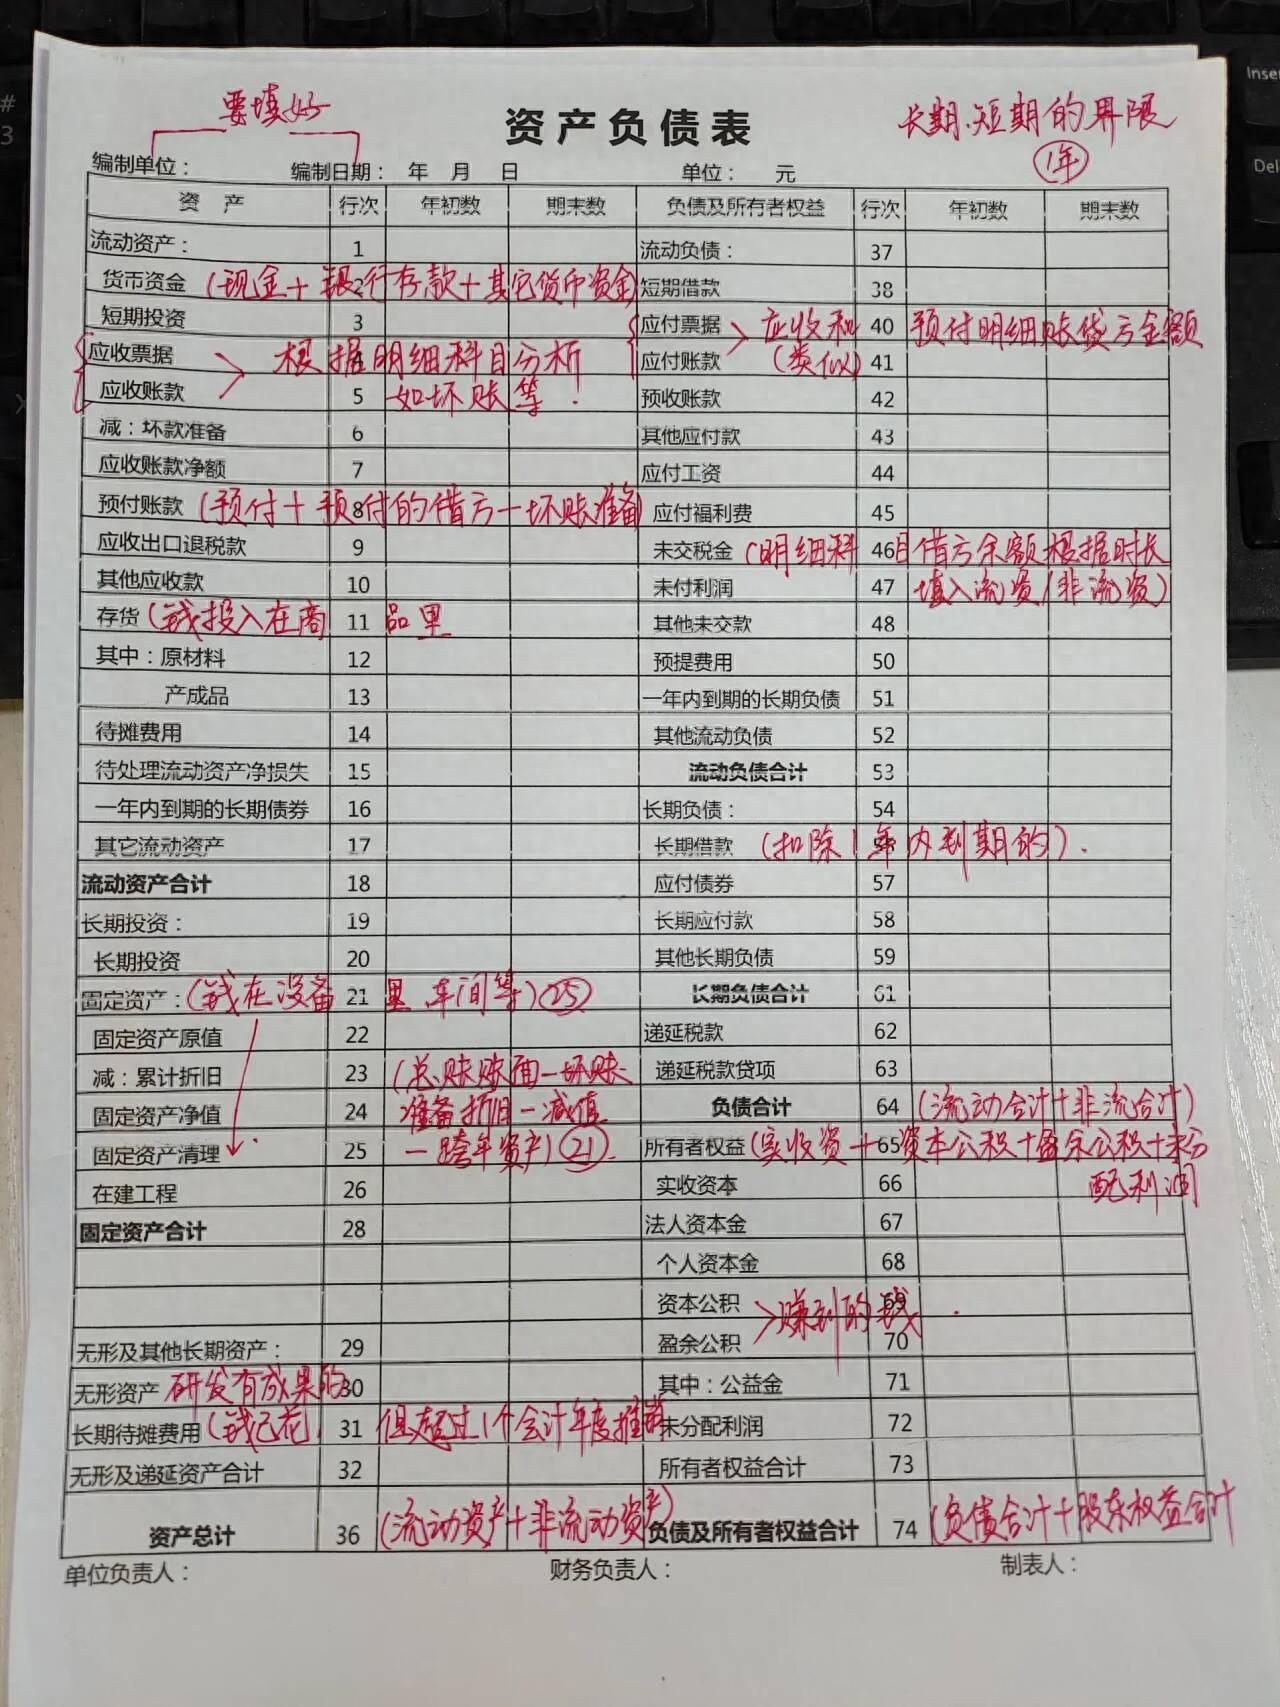 要填好
资产负债表
长期、短期的界限
1年
编制单位： 编制日期： 年 月 日 单位： 元
资 产 行次 年初数 期末数 负债及所有者权益 行次 年初数 期末数
流动资产： 1 流动负债： 37
货币资金 (现金+银行存款+其它货币资金) 2 短期借款 38
短期投资 3 应付票据 > 应收和 40 预付明细账贷方金额
应收票据 > 根据明细科目分析 4 应付账款 (类似) 41
应收账款 5 如坏账等！ 预收账款 42
减：坏款准备 6 其他应付款 43
应收账款净额 7 应付工资 44
预付账款 (预付+预付的借方-坏账准备) 8 应付福利费 45
应收出口退税款 9 未交税金 (明细科目借方余额根据时长 46
其他应收款 10 未付利润 47 填入流资/非流资)
存货 (钱投入在商品里 11 其他未交款 48
其中：原材料 12 预提费用 50
产成品 13 一年内到期的长期负债 51
待摊费用 14 其他流动负债 52
待处理流动资产净损失 15 流动负债合计 53
一年内到期的长期债券 16 长期负债： 54
其它流动资产 17 长期借款 (扣除1年内到期的).
流动资产合计 18 应付债券 57
长期投资： 19 长期应付款 58
长期投资 20 其他长期负债 59
固定资产：(钱在设备里、车间等) 25 21 长期负债合计 61
固定资产原值 22 递延税款 62
减：累计折旧 23 (总账账面-坏账 递延税款贷项 63
固定资产净值 24 准备折旧-减值 负债合计 64 (流动合计+非流合计)
固定资产清理 25 -跨年资产) 21 所有者权益 (实收资+资本公积+盈余公积+未分 65
在建工程 26 实收资本 66 配利润
固定资产合计 28 法人资本金 67
个人资本金 68
资本公积 > 赚到的钱. 69
无形及其他长期资产： 29 盈余公积 70
无形资产 研发有成果的 30 其中：公益金 71
长期待摊费用 (钱已花, 31 但超过1个会计年度摊销 未分配利润 72
无形及递延资产合计 32 所有者权益合计 73
资产总计 36 (流动资产+非流动资产) 负债及所有者权益合计 74 (负债合计+股东权益合计
单位负责人： 财务负责人： 制表人：